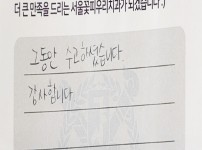 더 큰 만족을 드리는 서울꽃피우리치과가 되겠습니다 :)
그동안 수고하셨습니다.
감사합니다